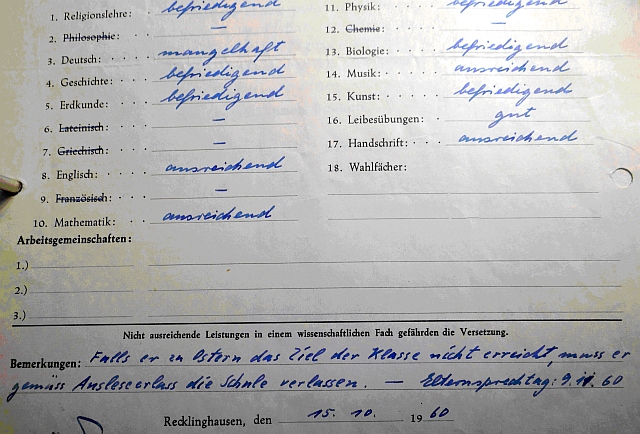 1. Religionslehre: befriedigend
11. Physik: befriedigend
2. Philosophie: —
12. Chemie: —
3. Deutsch: mangelhaft
13. Biologie: befriedigend
4. Geschichte: befriedigend
14. Musik: ausreichend
5. Erdkunde: befriedigend
15. Kunst: befriedigend
6. Lateinisch: —
16. Leibesübungen: gut
7. Griechisch: —
17. Handschrift: ausreichend
8. Englisch: ausreichend
18. Wahlfächer:
9. Französisch: —
10. Mathematik: ausreichend
Arbeitsgemeinschaften:
1.)
2.)
3.)
Nicht ausreichende Leistungen in einem wissenschaftlichen Fach gefährden die Versetzung.
Bemerkungen: Falls er zu Ostern das Ziel der Klasse nicht erreicht, muss er
gemäss Ausleseerlass die Schule verlassen. — Elternsprechtag: 9.11.60
Recklinghausen, den 15. 10. 1960